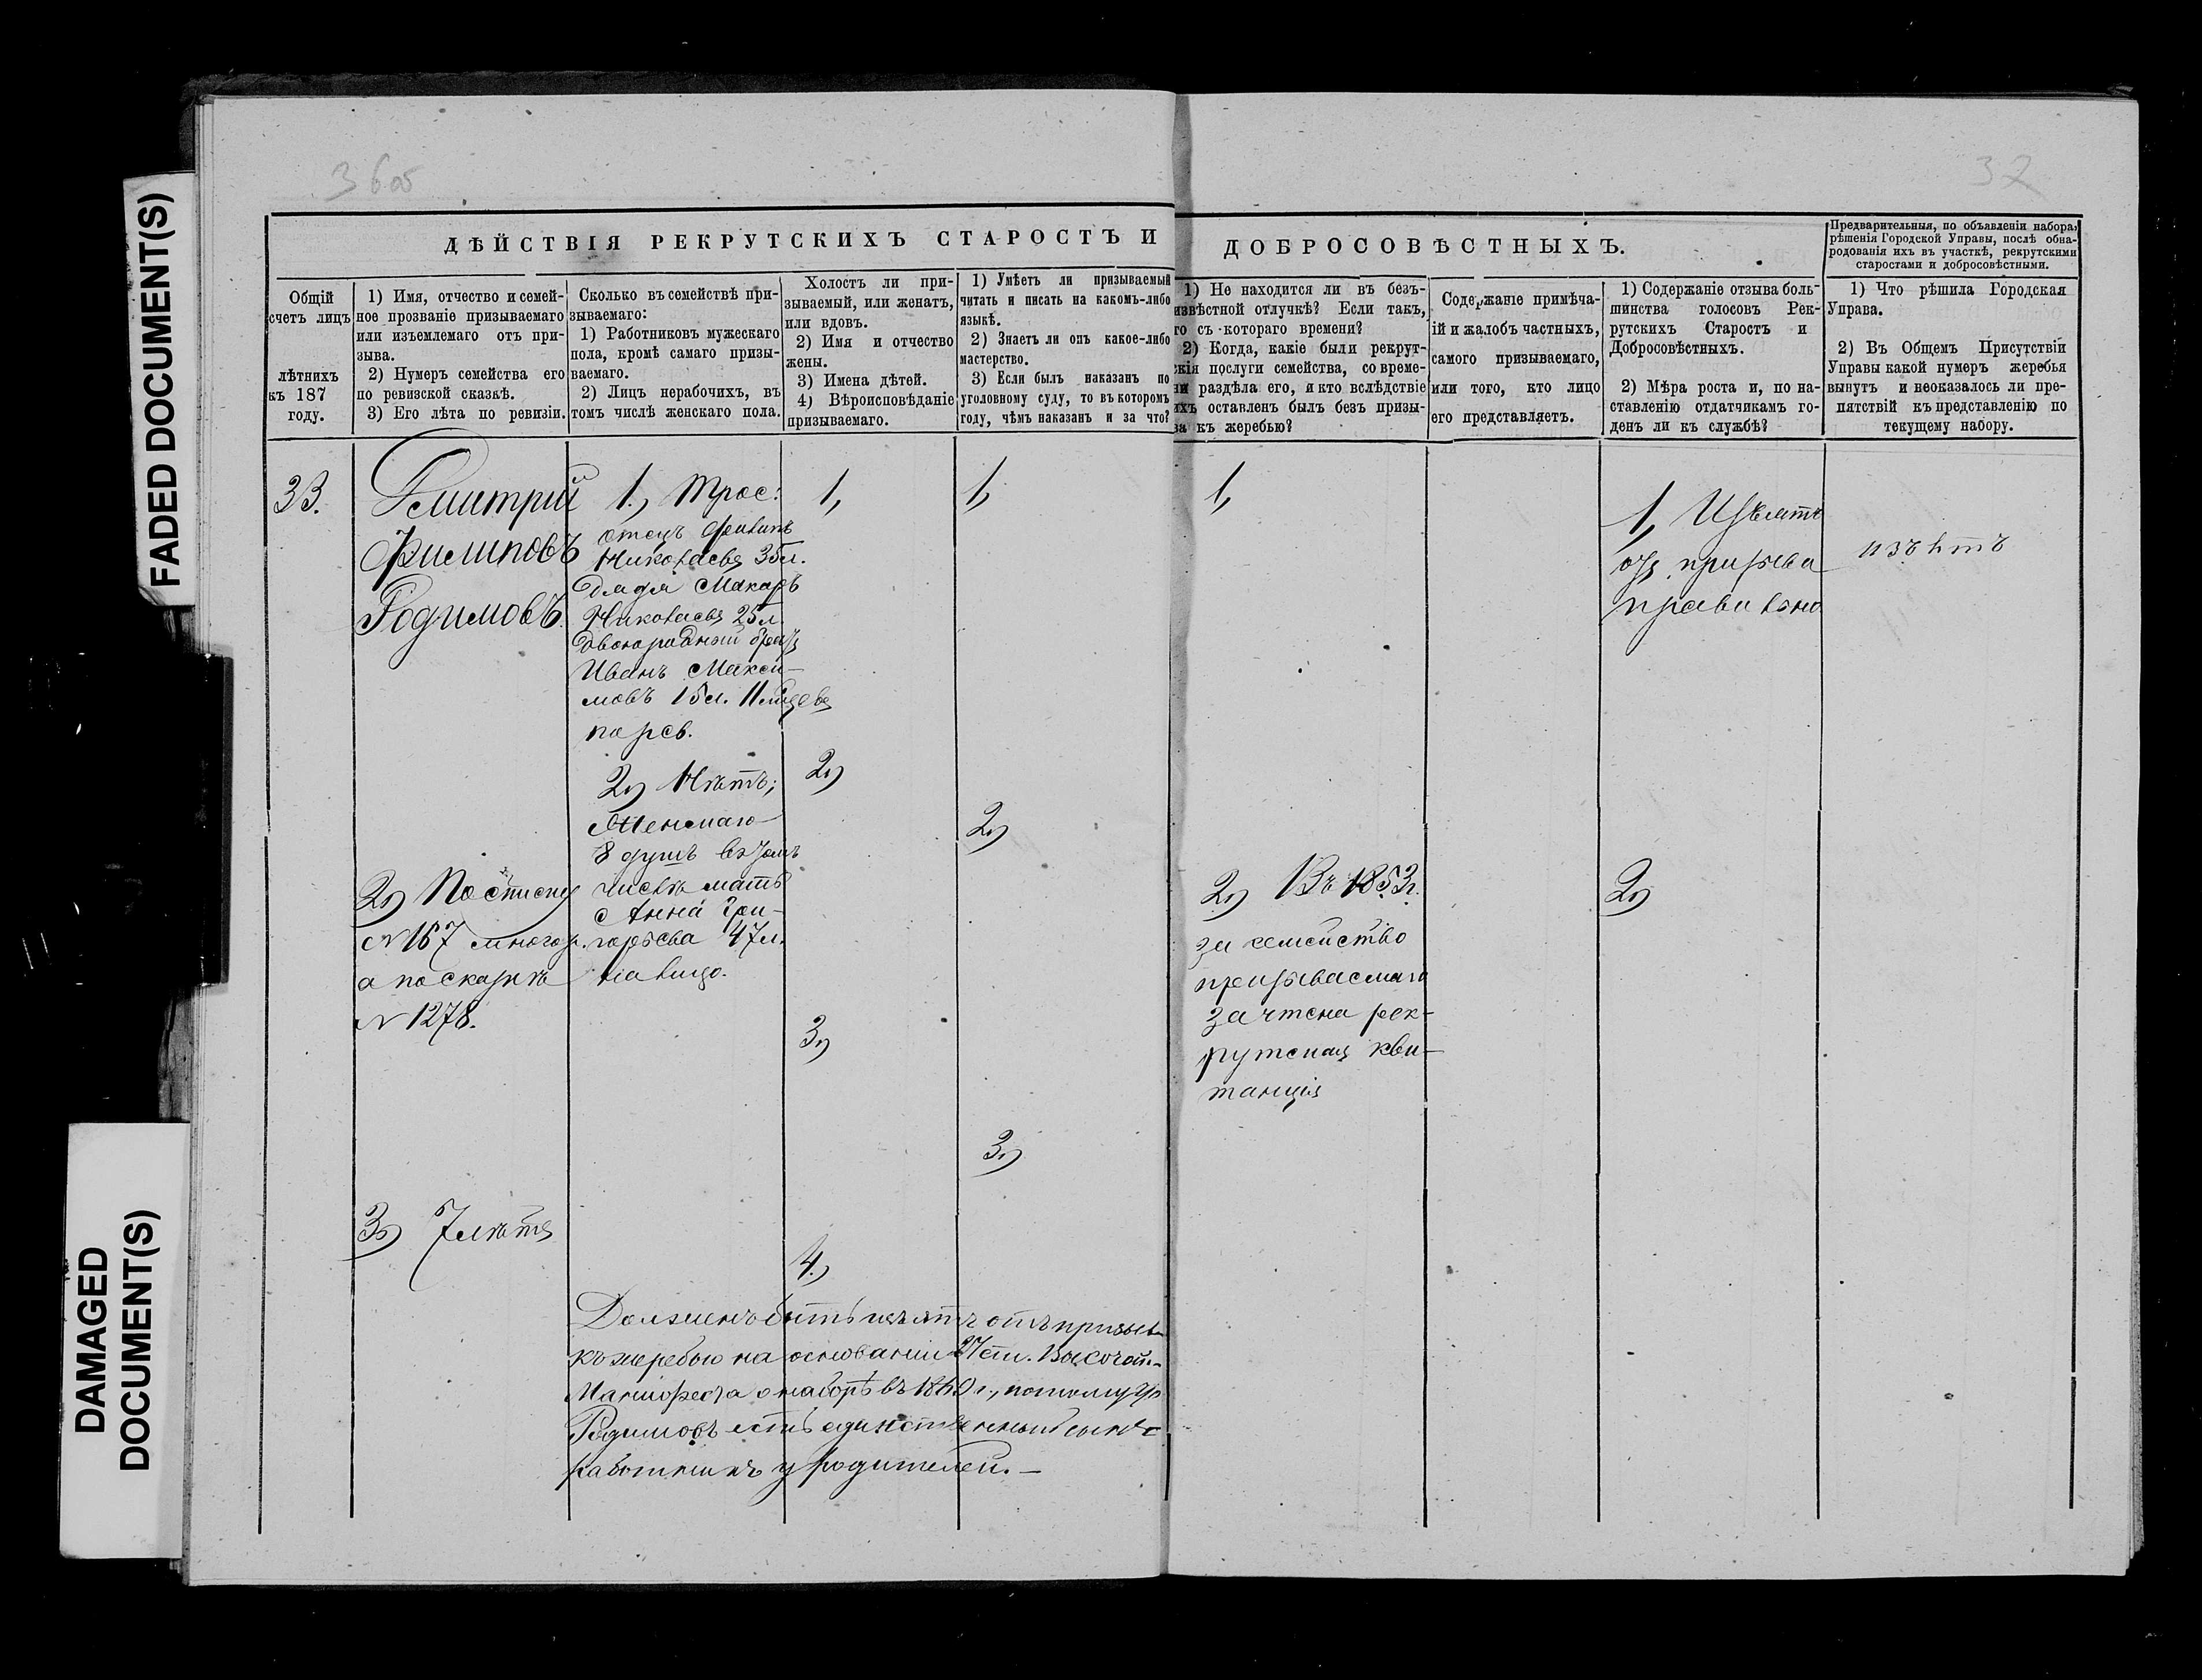 FADED DOCUMENT(S)
DAMAGED
DOCUMENT(S)
36 об
32
ДѢЙСТВІЯ РЕКРУТСКИХЪ СТАРОСТЪ И
ДОБРОСОВѢСТНЫХЪ.
Предварительныя, по объявленіи набора,
рѣшенія Городской Управы, послѣ обна-
родованія ихъ въ участкѣ, рекрутскими
старостами и добросовѣстными.
Общій
счетъ лицъ
лѣтнихъ
къ 187
году.
1) Имя, отчество и семей-
ное прозваніе призываемаго
или изъемлемаго отъ при-
зыва.
2) Нумеръ семейства его
по ревизской сказкѣ.
3) Его лѣта по ревизіи.
Сколько въ семействѣ при-
зываемаго:
1) Работниковъ мужескаго
пола, кромѣ самаго призы-
ваемаго.
2) Лицъ нерабочихъ, въ
томъ числѣ женскаго пола.
Холостъ ли при-
зываемый, или женатъ,
или вдовъ.
2) Имя и отчество
жены.
3) Имена дѣтей.
4) Вѣроисповѣданіе
призываемаго.
1) Умѣетъ ли призываемый
читать и писать на какомъ-либо
языкѣ.
2) Знаетъ ли онъ какое-либо
мастерство.
3) Если былъ наказанъ по
уголовному суду, то въ которомъ
году, чѣмъ наказанъ и за что?
1) Не находится ли въ безъ-
извѣстной отлучкѣ? Если такъ,
го съ котораго времени?
2) Когда, какіе были рекрут-
скія послуги семейства, со време-
ни раздѣла его, и кто вслѣдствіе
ихъ оставленъ былъ безъ призы-
ва къ жеребью?
Содержаніе примѣча-
ій и жалобъ частныхъ,
самого призываемаго,
или того, кто лицо
его представляетъ.
1) Содержаніе отзыва боль-
шинства голосовъ Рек-
рутскихъ Старостъ и
Добросовѣстныхъ.
2) Мѣра роста и, по на-
ставленію отдатчикамъ го-
денъ ли къ службѣ?
1) Что рѣшила Городская
Управа.
2) Въ Общемъ Присутствіи
Управы какой нумеръ жеребья
вынутъ и неоказалось ли пре-
пятствій къ представленію по
текущему набору.
33.
Дмитрій
Филиповъ
Родимовъ.
2) По списку
№ 167 многор.
а по сказкѣ
№ 1278.
3) 7 лѣтъ
1., Трое:
отецъ Филипъ
Николаевъ 35 л.
дядя Макаръ
Николаевъ 25 л.
двоюродный братъ
Иванъ Макси-
мовъ 15 л.
по рев.
2) Нѣтъ;
Женскаго
8 душъ въ томъ
числѣ мать
Анна Гри-
горьева 47 л.
на лицо.
1,
2)
3)
4.)
1,
2)
3)
Долженъ быть изъятъ отъ призыва
къ жеребью на основаніи ст. Высочай.
Манифеста о наборѣ въ г., потому что
Родимовъ есть единственный сынъ
работникъ у родителей. —
1,
2) Въ 1853 г.
за семейство
призываемаго
зачтена рек-
рутская кви-
танція
1, Изъятъ
отъ призыва
правильно
2)
изъятъ